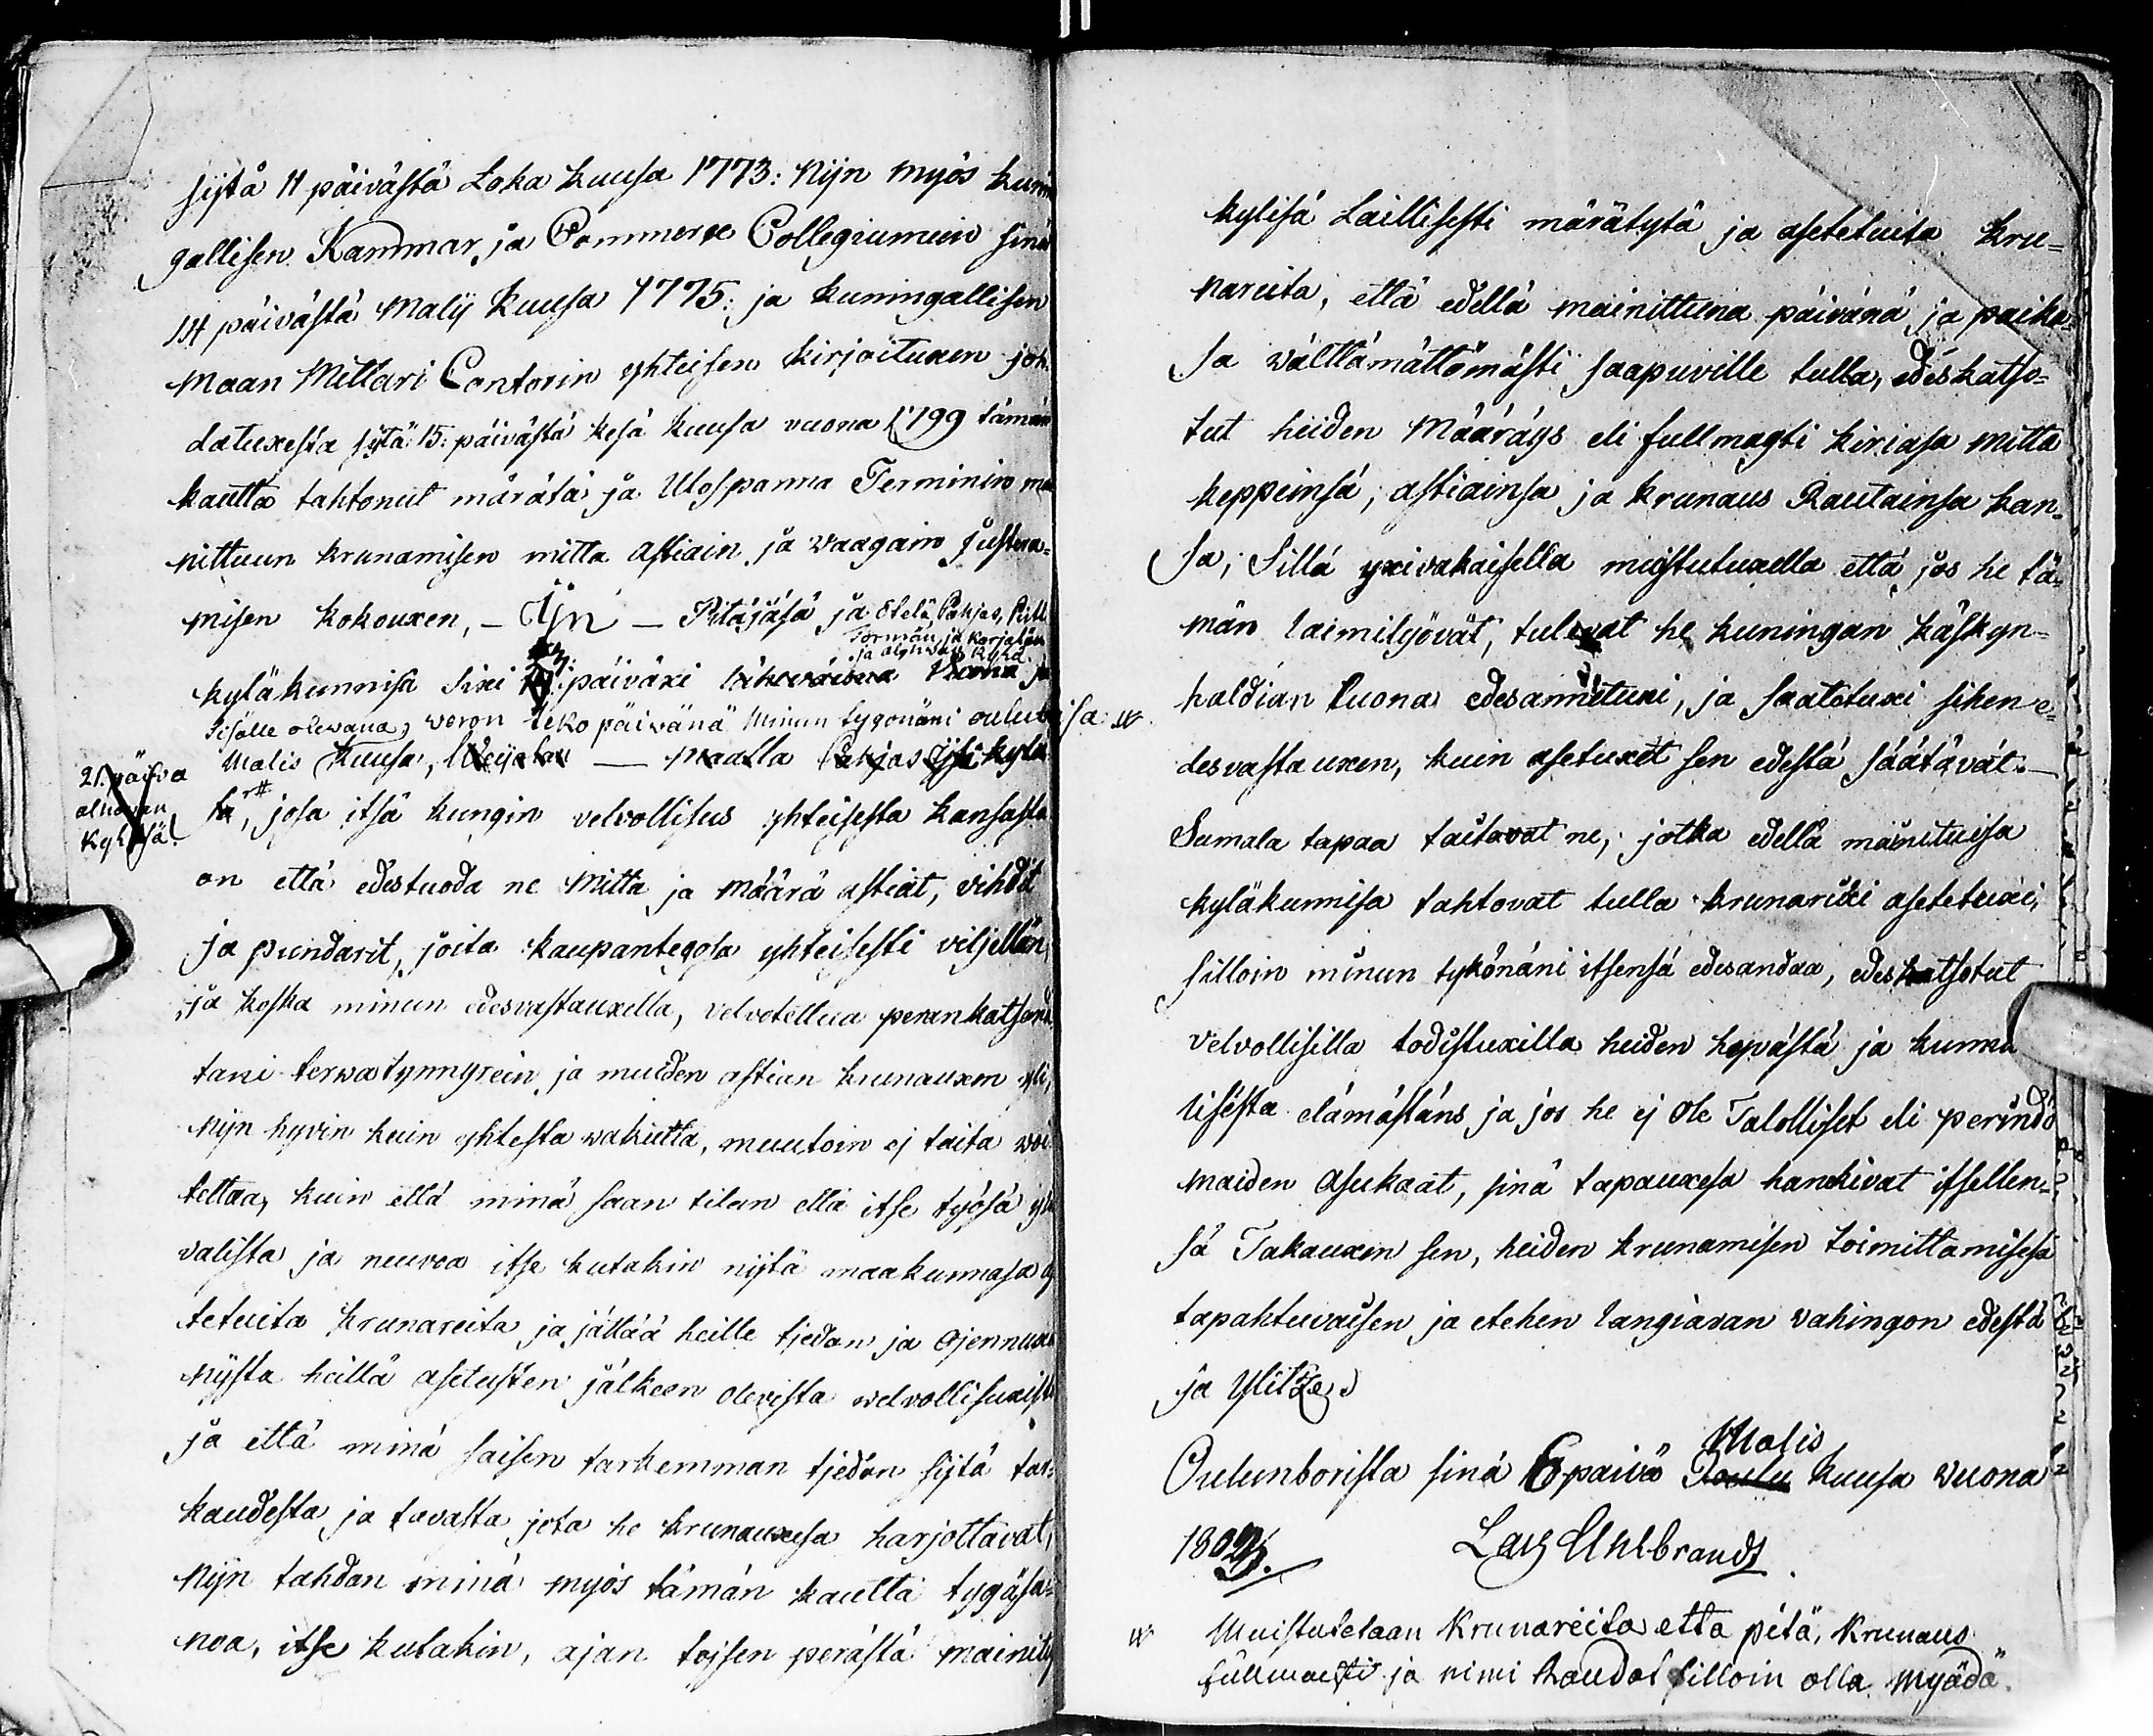 sijtä 11 päivästä Loka kuusa 1773: Nijn myös kunin
gallisen Kammar ja Commerse Collegiumein sinä
14 päivästä Malij kuusa 1775: ja kuningallisen
Maan Mittari Contorin yhteisen kirjoituxen joh
datuxesta sijtä 15: päivästä kesä kuusa vuona 1799 tämän
kautta tahtonut märätä ja Ulospanna Terminin mai
nittuun krunamisen mitta astiain ja Waagain Justera=
misen kokouxen, — Ijn — Pitäjäsä ja Etelä, Pohjas,
Jormän, ja Karjalan
ja alahwan Kylä.
kyläkunnisa Sixi päiväxi Vuona ja
sisälle olewana, weron teko päivänä Minun tygönäni oulu isa w
21. päiwa
alhawan
Kyläsä
Malis kuusa, — Maalla Pohjas Ijsi kylä
sa, josa itsä kungin velvollisus yhteisesta kansasta
on että edestuoda ne Mitta ja Määrä astiat, vihdit
ja pundarit, joita kaupantegosa yhteisesti viljellän,
ja koska minun edesvastauxella, velvotettua peränkatsand
tani terwatynnyrein ja muiden astian krunauxen yli,
nijn hyvin kuin yhtesta wakutta, muutoin ej taita woi
tettaa, kuin että minä saan tilan että itse työsä yl
valista ja neuvoa itse kutakin nijtä maakunnasa as
tetuita krunareita ja jättää heille tjedon ja Ojennuxen
nijsta heillä asetusten jälkeen olevista welvollisuxista
ja että minä saisin tarkemman tjedon sijtä tai=
kaudesta ja tavasta jota he krunauxesa harjottavat,
Nijn tahdon minä myös tämän kautta tygäsa=
noa, itse kutakin, ajan tojsen perästä mainituj
kylisä Laillisesti märätytä ja asetetuita kru=
nareita, että edellä mainittuna päivänä ja paika=
sa wälttämättömästi saapuville tulla, edeskatso=
tut heiden Määräys eli fullmagti kiriasa mitta
keppeinsä, astiainsa ja krunaus Rautainsa kan=
sa; Sillä yxivakaisella muistutuxella että jos he tä=
män laimilyövät, tulevat he kuningan käskyn=
haldian tuona edesannetuxi, ja saatetuxi sihen e=
desvastauxen, kuin asetuxet sen edestä säätävät.—
Samala tapaa taitavat ne, jotka edellä mainituisa
kyläkunnisa tahtovat tulla krunarixi asetetuxi,
silloin minun tykönäni itsensä edesandaa, edeskatsotut
velvollisilla todistuxilla heiden hepästä ja kunna
lisesta elämästäns ja jos he ej ole Talolliset eli perindö
maiden Asukaat, sinä tapauxesa hankivat itsellen=
sä Takauxen sen, heiden krunamisen toimittamisesa
tapahtuvaisen ja etehen langiavan vahingon edestä
ja Ylitze.
Malis
Oulunborista sinä 6 paivä Joulu kuusa vuona
1802.
Lars Ahlbrandt.
w Muistutetaan Krunareita etta pitä, krunaus
fullmacti ja nimi taudat silloin olla myödä.